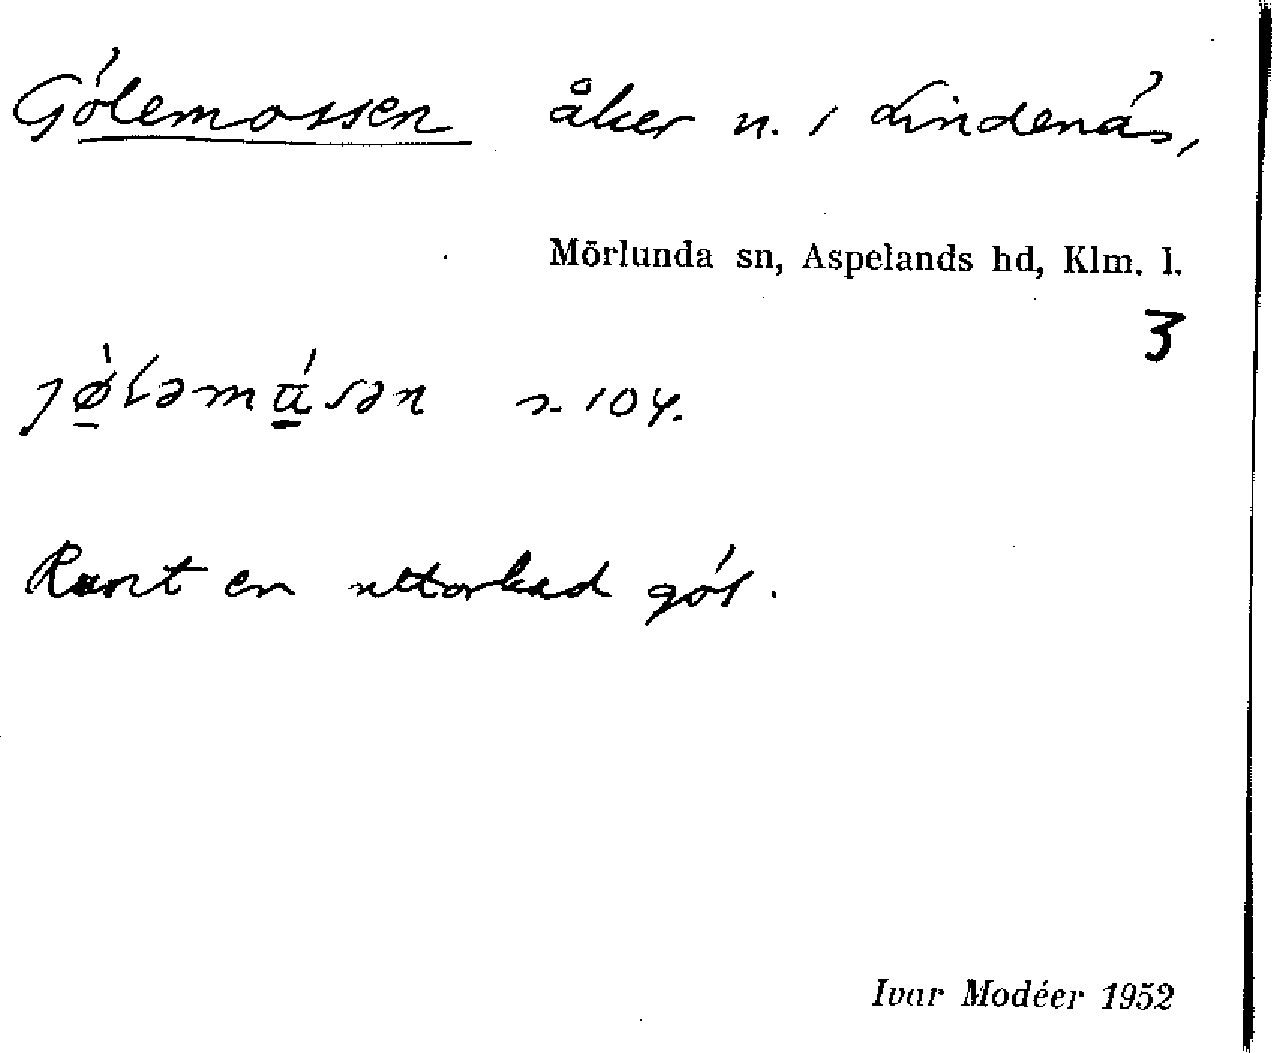 Gölemossen åker n. 1 Lindenäs,
Mörlunda sn, Aspelands hd, Klm. l.
3
s. 104.
Runt en uttorkad göl.
Ivar Modéer 1952